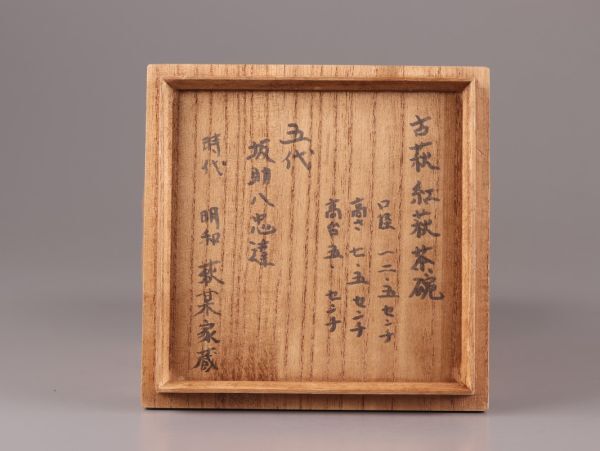 古萩紅萩茶碗
口径 一二・五センチ
高さ 七・五センチ
高台 五・センチ
五代
坂助八忠達
時代 明和 萩某家蔵